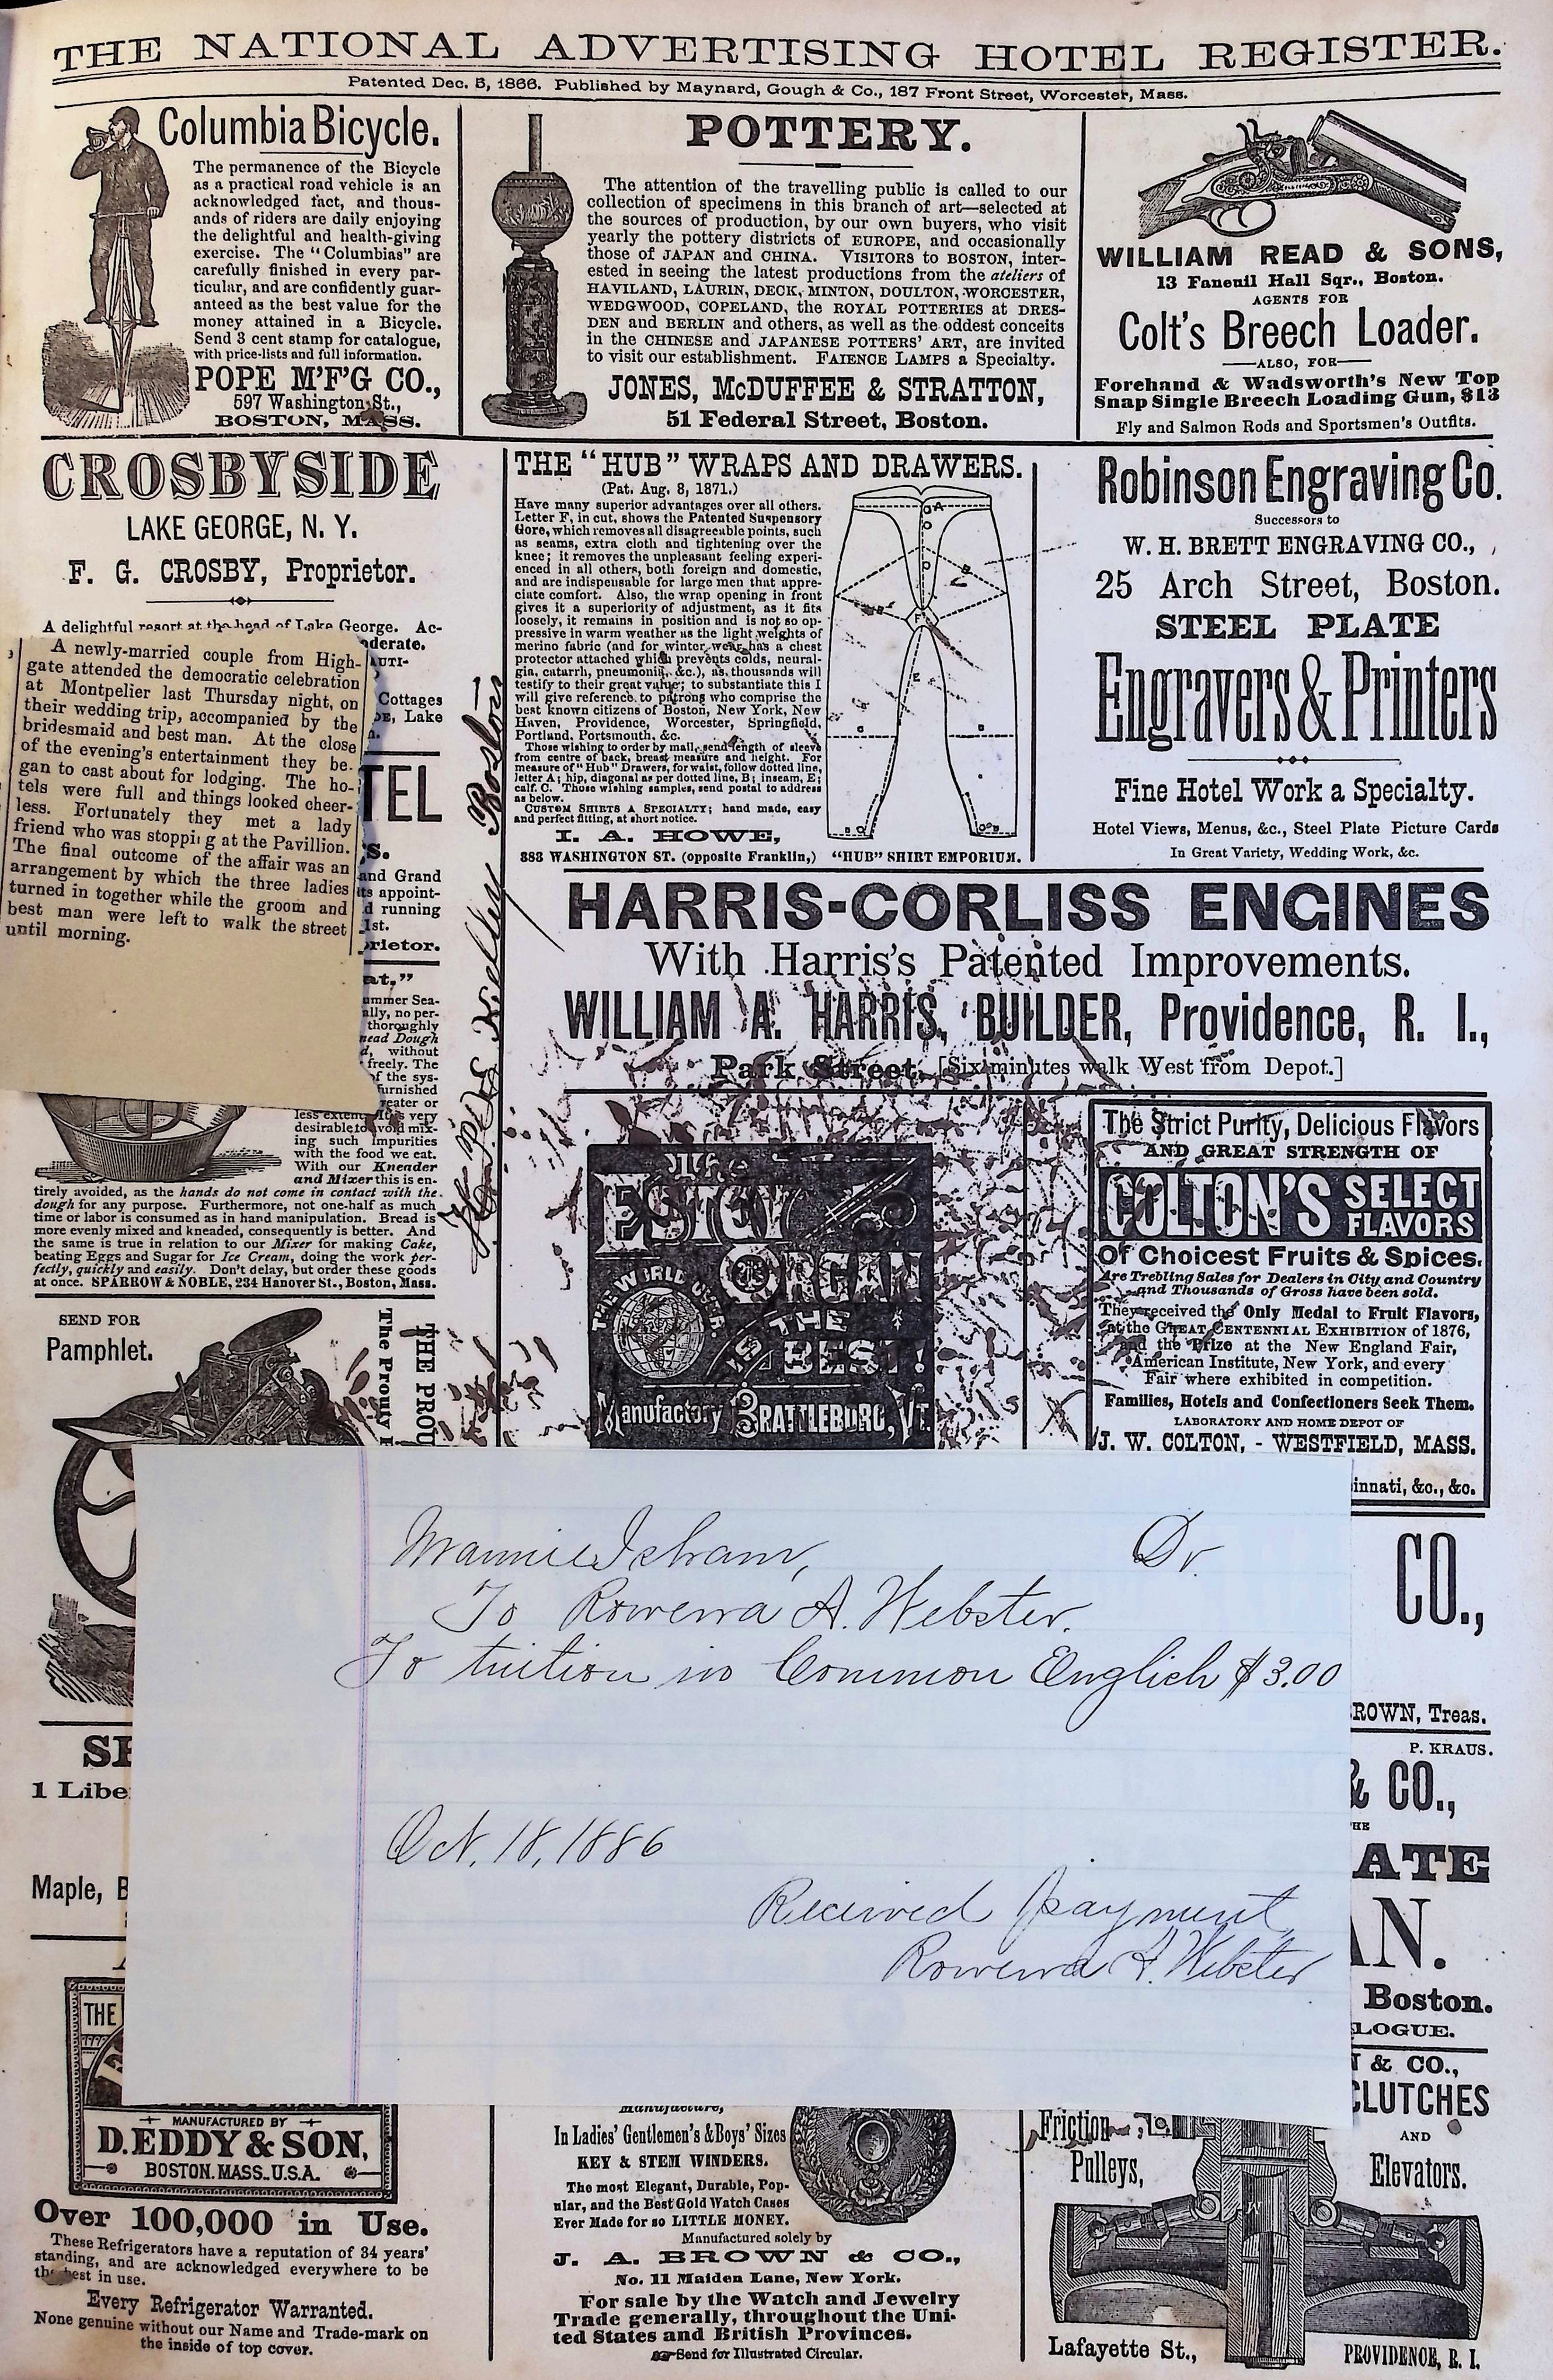 THE NATIONAL ADVERTISING HOTEL REGISTER.
Patented Dec. 5, 1866. Published by Maynard, Gough & Co., 187 Front Street, Worcester, Mass.
Columbia Bicycle.
The permanence of the Bicycle
as a practical road vehicle is an
acknowledged fact, and thous-
ands of riders are daily enjoying
the delightful and health-giving
exercise. The "Columbias" are
carefully finished in every par-
ticular, and are confidently guar-
anteed as the best value for the
money attained in a Bicycle.
Send 3 cent stamp for catalogue,
with price-lists and full information.
POPE M'F'G CO.,
597 Washington St.,
BOSTON, MASS.
POTTERY.
The attention of the travelling public is called to our
collection of specimens in this branch of art—selected at
the sources of production, by our own buyers, who visit
yearly the pottery districts of EUROPE, and occasionally
those of JAPAN and CHINA. VISITORS to BOSTON, inter-
ested in seeing the latest productions from the ateliers of
HAVILAND, LAURIN, DECK, MINTON, DOULTON, WORCESTER,
WEDGWOOD, COPELAND, the ROYAL POTTERIES at DRES-
DEN and BERLIN and others, as well as the oddest conceits
in the CHINESE and JAPANESE POTTERS' ART, are invited
to visit our establishment. FAIENCE LAMPS a Specialty.
JONES, McDUFFEE & STRATTON,
51 Federal Street, Boston.
WILLIAM READ & SONS,
13 Faneuil Hall Sqr., Boston.
AGENTS FOR
Colt's Breech Loader.
—ALSO, FOR—
Forehand & Wadsworth's New Top
Snap Single Breech Loading Gun, $13
Fly and Salmon Rods and Sportsmen's Outfits.
CROSBYSIDE
LAKE GEORGE, N. Y.
F. G. CROSBY, Proprietor.
A delightful resort at the head of Lake George. Ac-
oderate.
AUTI-
Cottages
DE, Lake
n.
A newly-married couple from High-
gate attended the democratic celebration
at Montpelier last Thursday night, on
their wedding trip, accompanied by the
bridesmaid and best man. At the close
of the evening's entertainment they be-
gan to cast about for lodging. The ho-
tels were full and things looked cheer-
less. Fortunately they met a lady
friend who was stoppi g at the Pavillion.
The final outcome of the affair was an
arrangement by which the three ladies
turned in together while the groom and
best man were left to walk the street
until morning.
TEL
'S.
and Grand
its appoint-
d running
1st.
prietor.
at."
ummer Sea-
ally, no per-
thoroughly
nead Dough
d, without
freely. The
of the sys-
furnished
reater or
less extent. It is very
desirable to avoid mix-
ing such impurities
with the food we eat.
With our Kneader
and Mixer this is en-
tirely avoided, as the hands do not come in contact with the
dough for any purpose. Furthermore, not one-half as much
time or labor is consumed as in hand manipulation. Bread is
more evenly mixed and kneaded, consequently is better. And
the same is true in relation to our Mixer for making Cake,
beating Eggs and Sugar for Ice Cream, doing the work per-
fectly, quickly and easily. Don't delay, but order these goods
at once. SPARROW & NOBLE, 234 Hanover St., Boston, Mass.
Kelley Boston
THE "HUB" WRAPS AND DRAWERS.
(Pat. Aug. 8, 1871.)
Have many superior advantages over all others.
Letter F, in cut, shows the Patented Suspensory
Gore, which removes all disagreeable points, such
as seams, extra cloth and tightening over the
knee; it removes the unpleasant feeling experi-
enced in all others, both foreign and domestic,
and are indispensable for large men that appre-
ciate comfort. Also, the wrap opening in front
gives it a superiority of adjustment, as it fits
loosely, it remains in position and is not so op-
pressive in warm weather as the light weights of
merino fabric (and for winter wear has a chest
protector attached which prevents colds, neural-
gia, catarrh, pneumonia, &c.), as thousands will
testify to their great value; to substantiate this I
will give reference to patrons who comprise the
best known citizens of Boston, New York, New
Haven, Providence, Worcester, Springfield,
Portland, Portsmouth, &c.
Those wishing to order by mail, send length of sleeve
from centre of back, breast measure and height. For
measure of "Hub" Drawers, for waist, follow dotted line,
letter A; hip, diagonal as per dotted line, B; inseam, E;
calf, C. Those wishing samples, send postal to address
as below.
CUSTOM SHIRTS A SPECIALTY; hand made, easy
and perfect fitting, at short notice.
I. A. HOWE,
383 WASHINGTON ST. (opposite Franklin,) "HUB" SHIRT EMPORIUM.
Robinson Engraving Co.
Successors to
W. H. BRETT ENGRAVING CO.,
25 Arch Street, Boston.
STEEL PLATE
Engravers & Printers
Fine Hotel Work a Specialty.
Hotel Views, Menus, &c., Steel Plate Picture Cards
In Great Variety, Wedding Work, &c.
HARRIS-CORLISS ENGINES
With Harris's Patented Improvements.
WILLIAM A. HARRIS, BUILDER, Providence, R. I.,
Park Street. [Six minutes walk West from Depot.]
The
ESTEY
ORGAN
THE WORLD OVER.
IS THE
BEST!
Manufactory BRATTLEBORO, VT.
The Strict Purity, Delicious Flavors
AND GREAT STRENGTH OF
COLTON'S SELECT FLAVORS
Of Choicest Fruits & Spices.
Are Trebling Sales for Dealers in City and Country
and Thousands of Gross have been sold.
They received the Only Medal to Fruit Flavors,
at the GREAT CENTENNIAL EXHIBITION of 1876,
and the Prize at the New England Fair,
American Institute, New York, and every
Fair where exhibited in competition.
Families, Hotels and Confectioners Seek Them.
LABORATORY AND HOME DEPOT OF
J. W. COLTON, - WESTFIELD, MASS.
innati, &c., &c.
SEND FOR
Pamphlet.
THE PROU
The Prouty
Mamie Isham, Dr
To Rowena A. Webster.
To tuition in Common English $3.00
Oct. 18, 1886
Received payment,
Rowena A. Webster
CO.,
ROWN, Treas.
P. KRAUS.
& CO.,
HE
ATE
AN.
Boston.
LOGUE.
N & CO.,
CLUTCHES
AND
Elevators.
Friction
Pulleys,
Lafayette St.,
PROVIDENCE, R. I.
1 Libe
Maple, B
THE
MANUFACTURED BY
D. EDDY & SON,
BOSTON. MASS. U.S.A.
Over 100,000 in Use.
These Refrigerators have a reputation of 34 years'
standing, and are acknowledged everywhere to be
the best in use.
Every Refrigerator Warranted.
None genuine without our Name and Trade-mark on
the inside of top cover.
Manufacture,
In Ladies' Gentlemen's & Boys' Sizes
KEY & STEM WINDERS.
The most Elegant, Durable, Pop-
ular, and the Best Gold Watch Cases
Ever Made for so LITTLE MONEY.
Manufactured solely by
J. A. BROWN & CO.,
No. 11 Maiden Lane, New York.
For sale by the Watch and Jewelry
Trade generally, throughout the Uni-
ted States and British Provinces.
Send for Illustrated Circular.